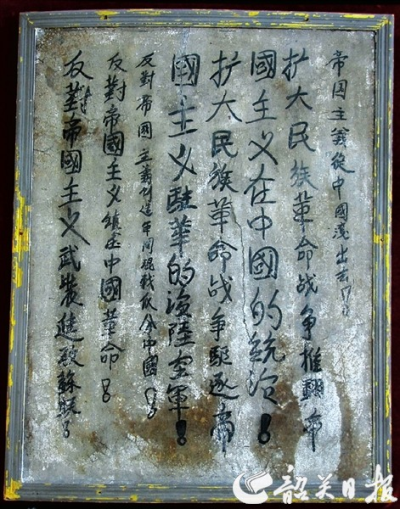 帝囯主義從中國滚出去!!
扩大民族革命战争推翻帝
國主义在中國的統治!
扩大民族革命战争驅逐帝
國主义駐華的海陸空軍!
反對帝國主義制造軍閥混戰瓜分中國!!
反對帝國主义鎮压中國革命!
反對帝國主义武裝進攻蘇联!
韶关日报